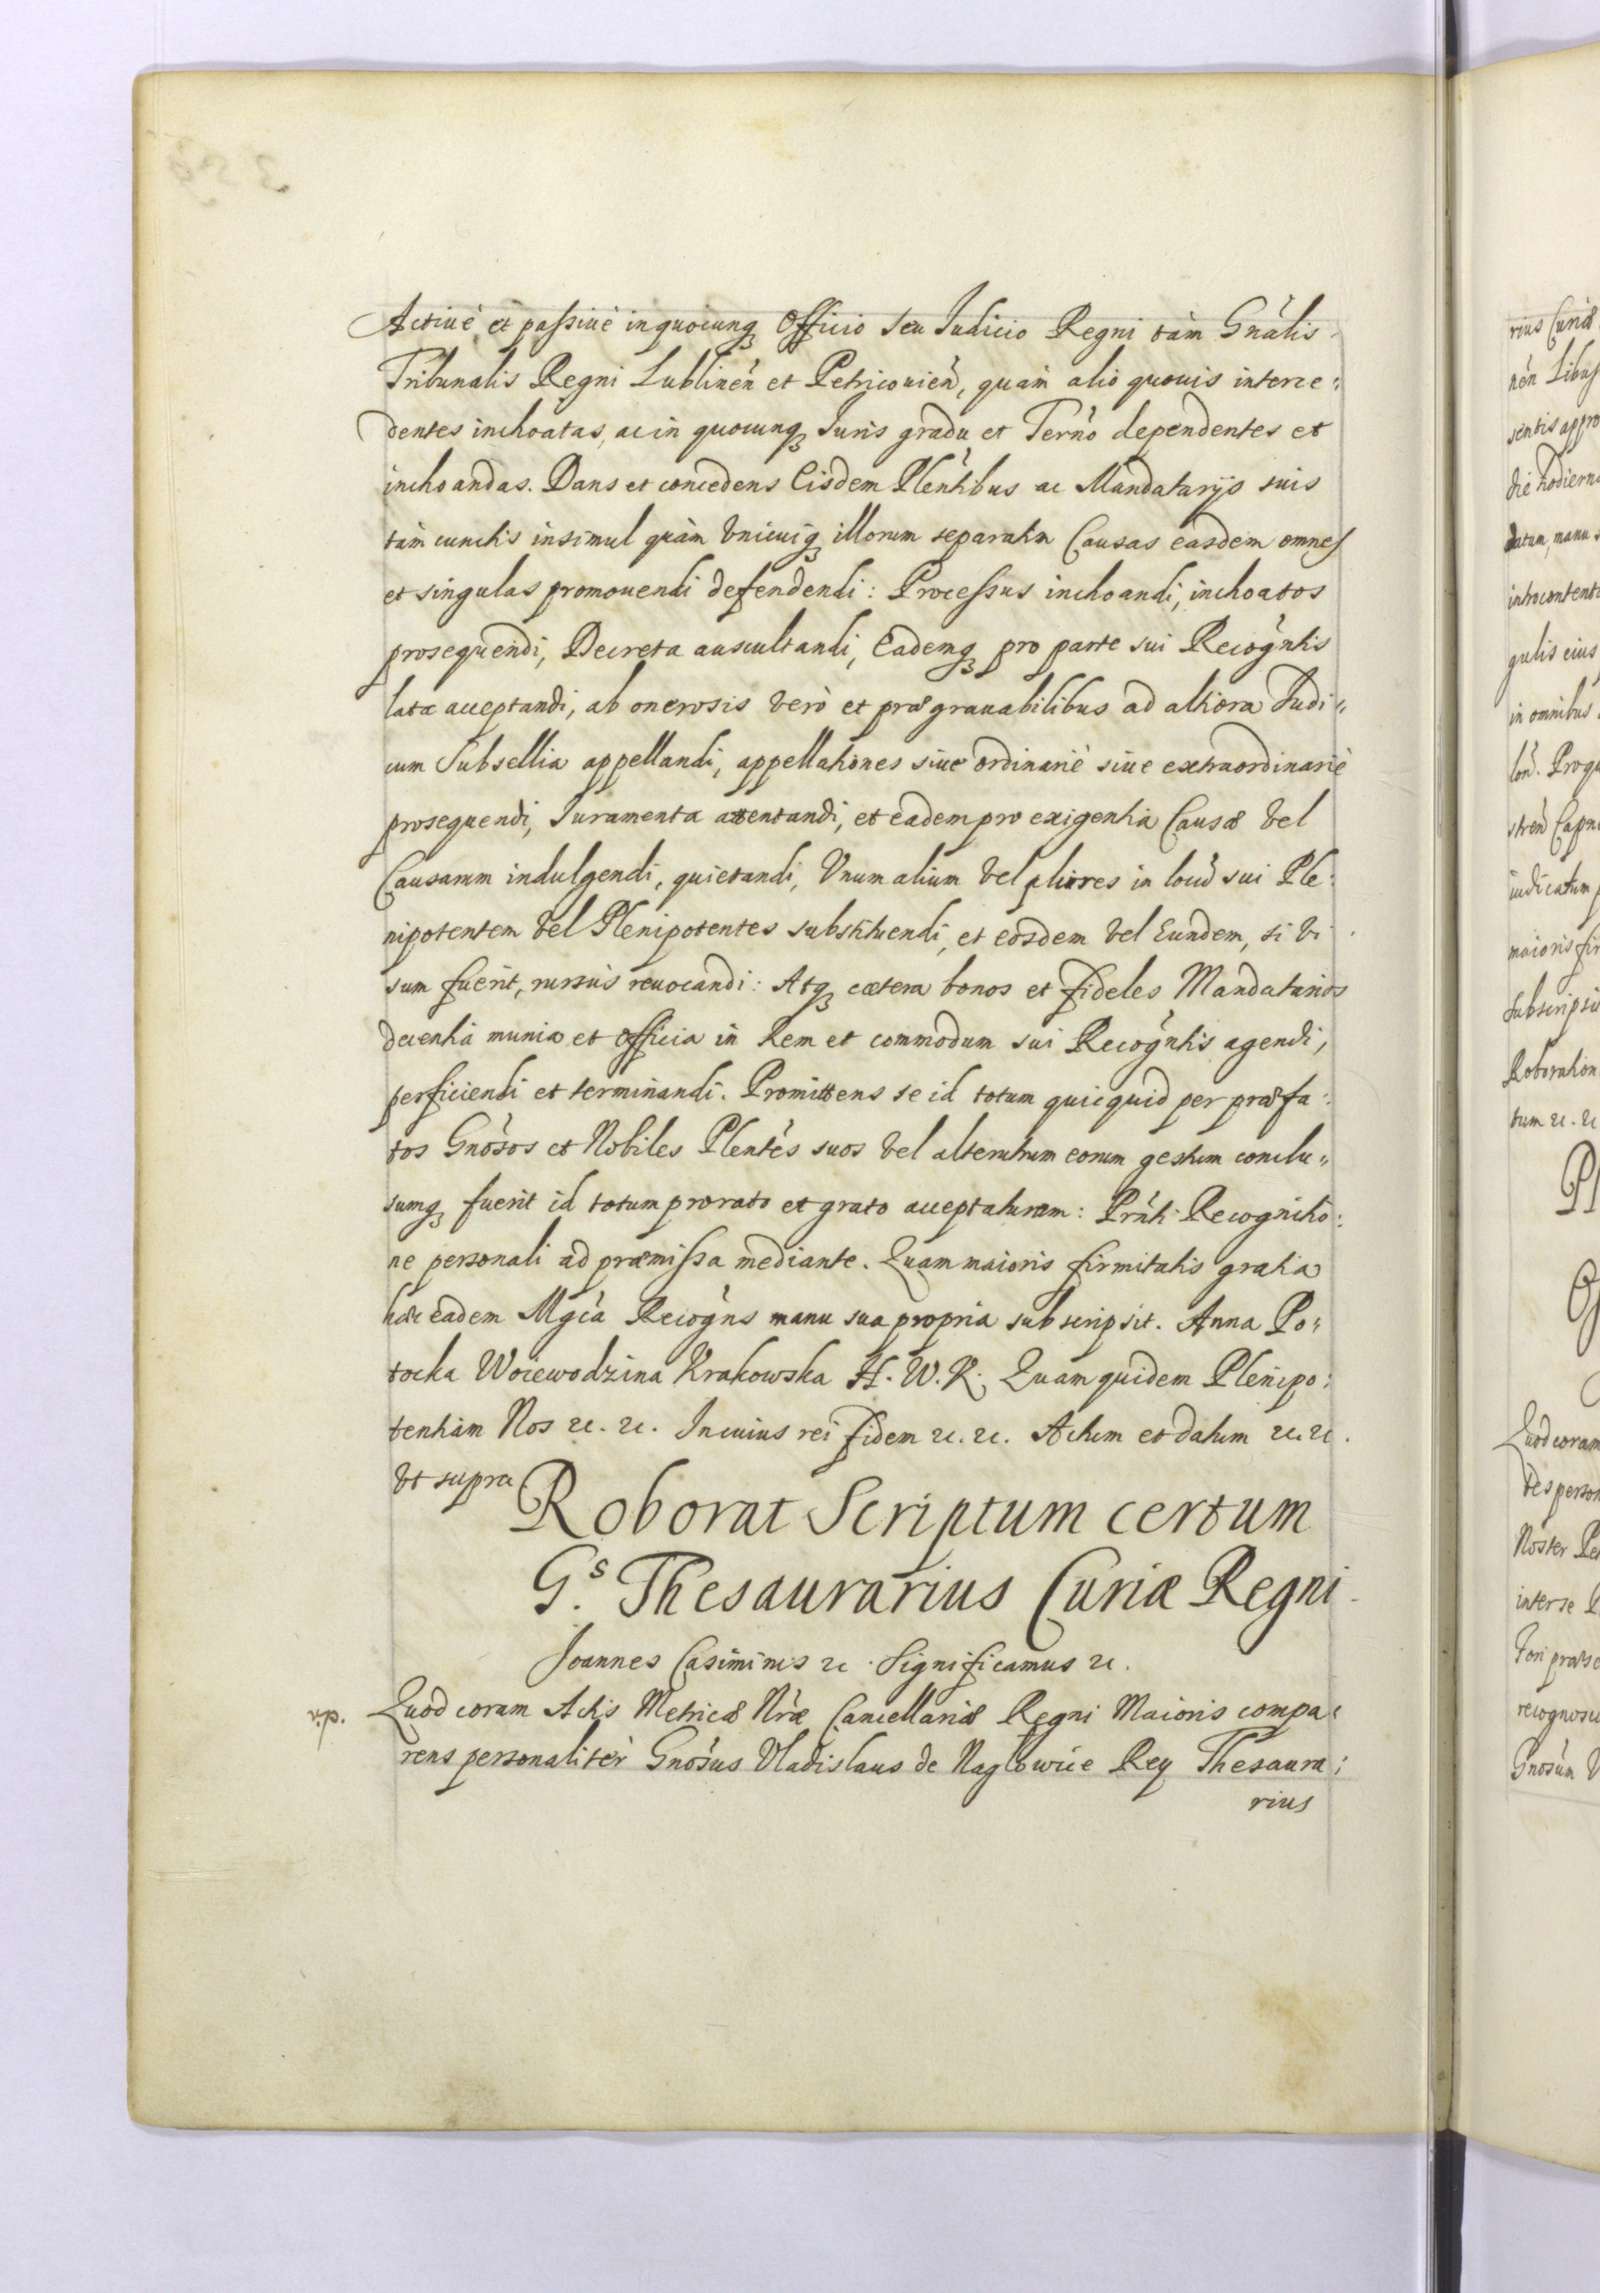 Actiuè et passiuè in quocunq₃ Officio seu Iudicio Regni tàm Gnàlis
Tribunalis Regni Lublineǹ et Petricouieǹ, quàm alio quouis interce:
dentes inchoatas, ac in quocunq₃ Iuris gradu et Terno dependentes et
inchoandas. Dans et concedens Eisdem Plentibus ac Mandatarijs suis
tàm cunctis insimul quàm vnicuiq₃ illorum separatim Causas easdem omnes
et singulas promouendi defendendi: Processus inchoandi, inchoatos
prosequendi, Decreta auscultandi, Eademq₃ pro parte sui Recogntis
lata acceptandi, ab onerosis verò et prægrauabilibus ad altiora Iudi:
cum Subsellia appellandi, appellationes siue ordinariè siue extraordinariè
prosequendi, Iuramenta attentandi, et eadem pro exigentia Causæ vel
Causarum indulgendi, quietandi, Vnum alium vel plures in locu sui Ple:
nipotentem vel Plenipotentes substituendi, et eosdem vel Eundem, si vi
sum fuerit, rursùs reuocandi: Atq₃ cætera bonos et fideles Mandatarios
decentia munia et Officia in Rem et commodum sui Recogntis agendi,
perficiendi et terminandi. Promittens se id totum quicquid per præfa:
tos Gnosos et Nobiles Plentes suos vel alterutrum eorum gestum conclu:
sumq₃ fuerit id totum pro rato et grato accepturam: Prnti Recognitio:
ne personali ad præmissa mediante. Quam maioris firmitatis gratia
hæc eadem Mgca Recogns manu sua propria subscripsit. Anna Po:
tocka Woiewodzina Krakowska H. W. K. Quam quidem Plenipo:
tentiam Nos etc. etc. In cuius rei fidem etc. etc. Actum et datum etc. etc.
vt supra
Roborat Scriptum certum
G.s Thesaurarius Curiæ Regni
Joannes Casimirus etc. Significamus etc.
r.p. Quod coram Actis Metricæ Nræ Cancellariæ Regni Maioris compa:
rens personaliter Gnosus Vladislaus de Naglowice Rey Thesaura:
rius
rius Curiæ
sentis appro
die hodierna
datum, manu s
gulis eius
in omnibus
maioris fir
Subscripsit
Roboration
tum etc. etc
Quod coram
tes person
Noster
inter se
recognosc
Gnosum V